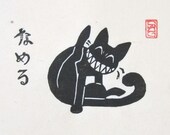 なめる